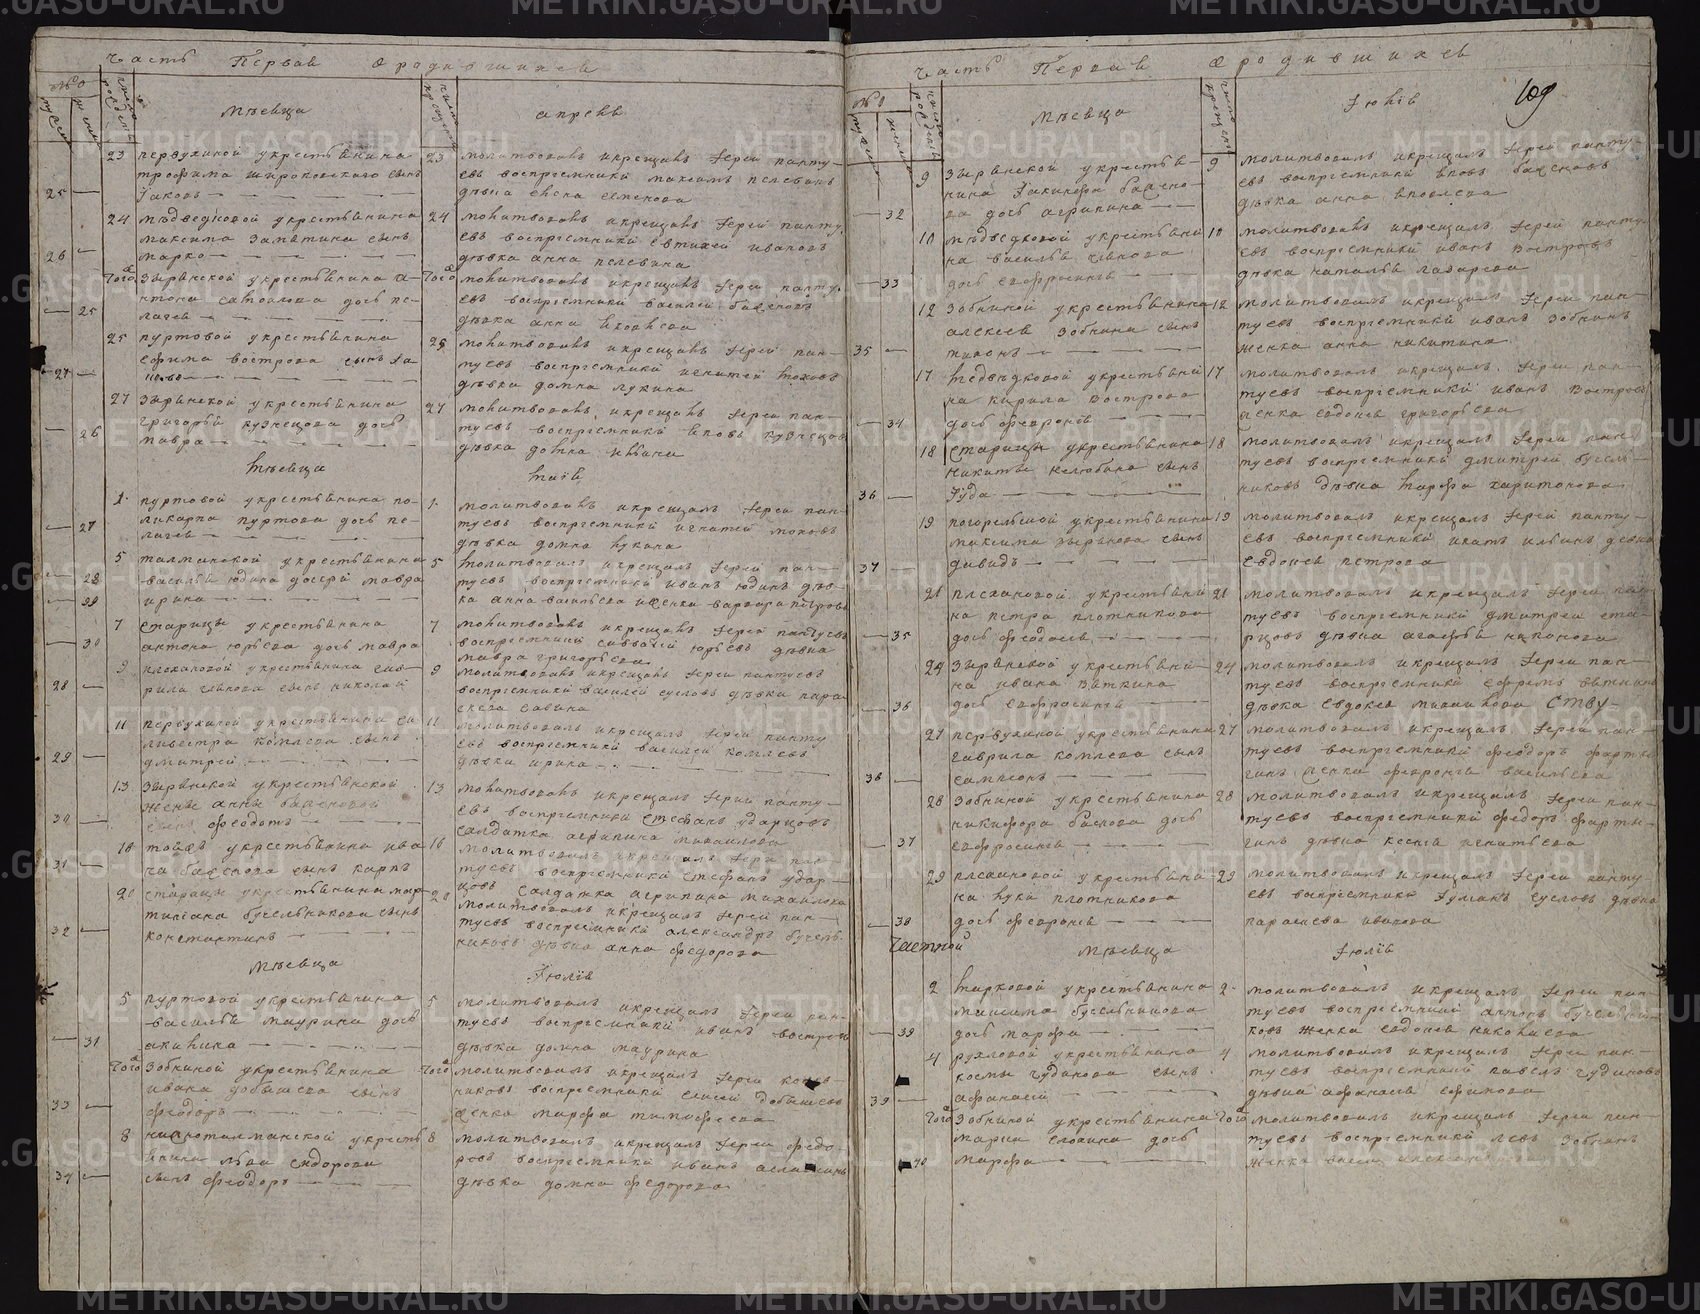 Часть Первая О родившихся
№
Мѣсяца
апреля
23 первухиной укрестьянина
трофима широковского сынъ
25 — Iаковъ
23 молитвовалъ икрещалъ Iерей панту-
евъ воспрiемники максимъ пелевинъ
дѣвка елена семенова
24 мѣдведковой укрестьянина
максима замятина сынъ
26 — марко
24 молитвовалъ икрещалъ Iерей панту
евъ воспрiемники евтихей ивановъ
дѣвка анна пелевина
Того зырянской укрестьянина а-
нтона самойлова дочь пе-
— 25 лагея
Того молитвовалъ икрещалъ Iерей панту-
евъ воспрiемники василей баженовъ
дѣвка анна
25 пуртовой укрестьянина
ефима вострова сынъ
27 —
25 молитвовалъ икрещалъ Iерей пан-
туевъ воспрiемники игнатей моховъ
дѣвка домна лукина
27 зырянской укрестьянина
григорья кузнецова дочь
— 26 мавра
27 молитвовалъ икрещалъ Iерей пан-
туевъ воспрiемники iяковъ кузнецовъ
дѣвка домна ильина
мѣсяца
маiя
1 пуртовой укрестьянина по-
ликарпа пуртова дочь пе-
— 27 лагея
1 молитвовалъ икрещалъ Iерей пан-
туевъ воспрiемники игнатей моховъ
дѣвка домна лукина
5 талманской укрестьянина
— 28 василья юдина дочери мавра
— 29 ирина
5 молитвовалъ икрещалъ Iерей пан-
туевъ воспрiемники иванъ юдинъ дѣв-
ка анна васильева иженка варвара петрова
7 старицы укрестьянина
— 30 антона юрьева дочь мавра
7 молитвовалъ икрещалъ Iерей пантуевъ
воспрiемники савватей юрьевъ дѣвка
мавра григорьева
9 плехановой укрестьянина гав-
28 — рила сынъ николай
9 молитвовалъ икрещалъ Iерей пантуевъ
воспрiемники василей сусловъ дѣвка пара-
скева савина
11 первухиной укрестьянина си-
ливестра комлева сынъ
29 — дмитрей
11 молитвовалъ икрещалъ Iерей панту
евъ воспрiемники василей комлевъ
дѣвка ирина
13 зырянской укрестьянской
женки анны баженовой
30 — сынъ феодотъ
13 молитвовалъ икрещалъ Iерей панту-
евъ воспрiемники стефанъ ударцовъ
салдатка агрипина михаилова
16 тойжъ укрестьянина ива
31 — на баженова сынъ карпъ
16 молитвовалъ икрещалъ Iерей пан-
туевъ воспрiемники стефанъ удар-
цовъ салдатка агрипина михаилова
20 старицы укрестьянина мар-
тинiана бусельникова сынъ
32 — константинъ
20 молитвовалъ икрещалъ Iерей пан-
туевъ воспрiемники александръ бусель-
никовъ дѣвка анна федорова
мѣсяца
Iюнiя
5 пуртовой укрестьянина
василья маурина дочь
— 31 акилина
5 молитвовалъ икрещалъ Iерей пан-
туевъ воспрiемники иванъ востровъ
дѣвка домна маурина
Того зобниной укрестьянина
ивана добышева сынъ
33 — феодоръ
Того молитвовалъ икрещалъ Iерей
никовъ воспрiемники елисей добышевъ
женка марфа тимофеева
8 нижноталманской укресть
янина льва сидорова
34 — сынъ феодоръ
8 молитвовалъ икрещалъ Iерей федо-
ровъ воспрiемники иванъ
дѣвка домна федорова
Часть Первая О родившихся
109
№
Мѣсяца
Iюнiя
9 зырянской укрестья-
нина Iакинфа бажено-
— 32 ва дочь агрипина
9 молитвовалъ икрещалъ Iерей панту-
евъ воспрiемники iяковъ баженовъ
дѣвка анна яковлева
10 мѣдведковой укрестьяни
на василья
— 33 дочь евфросинiя
10 молитвовалъ икрещалъ Iерей панту
евъ воспрiемники иванъ востровъ
дѣвка наталья лазарева
12 зобниной укрестьянина
алексея зобнина сынъ
35 — тихонъ
12 молитвовалъ икрещалъ Iерей пан-
туевъ воспрiемники иванъ зобнинъ
женка анна никитина
17 медвѣдковой укрестьяни
на кирила вострова
— 34 дочь февронiя
17 молитвовалъ икрещалъ Iерей пан-
туевъ воспрiемники иванъ востровъ
женка евдокiя григорьева
18 старицы укрестьянина
никиты нелюбина сынъ
36 — Iуда
18 молитвовалъ икрещалъ Iерей пан
туевъ воспрiемники дмитрей бусель-
никовъ дѣвка марфа харитонова
19 погорельской укрестьянина
максима зырянова сынъ
37 — давидъ
19 молитвовалъ икрещалъ Iерей панту-
евъ воспрiемники игнатъ ильинъ девка
евдокiя петрова
21 плехановой укрестьяни
на петра плотникова
— 35 дочь феодосiя
21 молитвовалъ икрещалъ Iерей пан-
туевъ воспрiемники дмитрей ста-
рцовъ дѣвка агафья никонова
24 зырянской укрестьяни-
на ивана вяткина
— 36 дочь евфросинiя
24 молитвовалъ икрещалъ Iерей пан-
туевъ воспрiемники ефремъ вяткинъ
дѣвка евдокея
27 первухиной укрестьянина
гаврила комлева сынъ
38 — сампсонъ
27 молитвовалъ икрещалъ Iерей пан-
туевъ воспрiемники феодоръ фарты-
гинъ женка февронiя васильева
28 зобниной укрестьянина
никифора баслова дочь
— 37 евфросинiя
28 молитвовалъ икрещалъ Iерей пан-
туевъ воспрiемники федоръ фарты-
гинъ дѣвка ксенiя игнатьева
29 плехановой укрестьяни-
на луки плотникова
— 38 дочь февронiя
29 молитвовалъ икрещалъ Iерей панту-
евъ воспрiемники сусловъ дѣвка
парасева иванова
Частной
Мѣсяца
Iюлiя
2 марковой укрестьянина
максима бусельникова
— 39 дочь марфа
2 молитвовалъ икрещалъ Iерей пан-
туевъ воспрiемники антонъ бусельни-
ковъ женка евдокея николаева
4 рухловой укрестьянина
космы чудинова сынъ
39 — афанасей
4 молитвовалъ икрещалъ Iерей пан-
туевъ воспрiемники павелъ чудиновъ
дѣвка афанасiя ефимова
Того зобниной укрестьянина
марка дочь
— 40 марфа
Того молитвовалъ икрещалъ Iерей пан-
туевъ воспрiемники левъ зобнинъ
женка